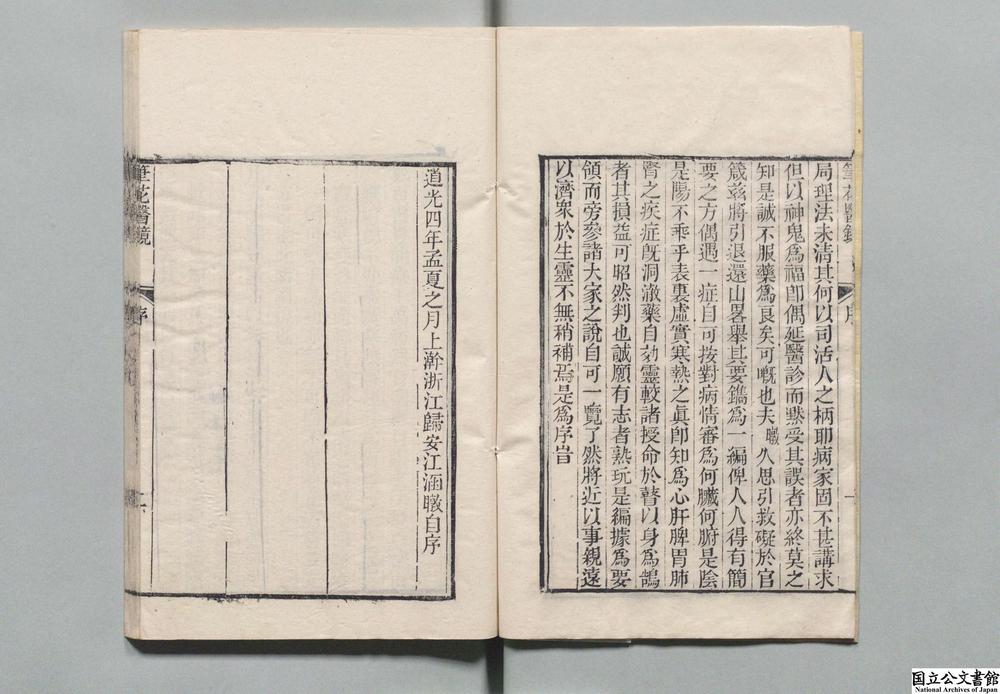 筆花醫鏡
序
一
局理法未清其何以司活人之柄耶病家固不甚講求
但以神鬼爲福卽偶延醫診而黙受其誤者亦終莫之
知是誠不服藥爲良矣可嘅也夫暾久思引救礙於官
箴兹將引退還山畧舉其要鐫爲一編俾人人得有簡
要之方偶遇一症自可按對病情審爲何臟何腑是陰
是陽不乖乎表裏虛實寒熱之眞卽知爲心肝脾胃肺
腎之疾症旣洞澈藥自効靈較諸授命於瞽以身爲鵠
者其損益可昭然判也誠願有志者熟玩是編據爲要
領而旁參諸大家之說自可一覽了然將近以事親遠
以濟衆於生靈不無稍補焉是爲序旹
道光四年孟夏之月上澣浙江歸安江涵暾自序
筆花醫鏡
序
二
国立公文書館
National Archives of Japan